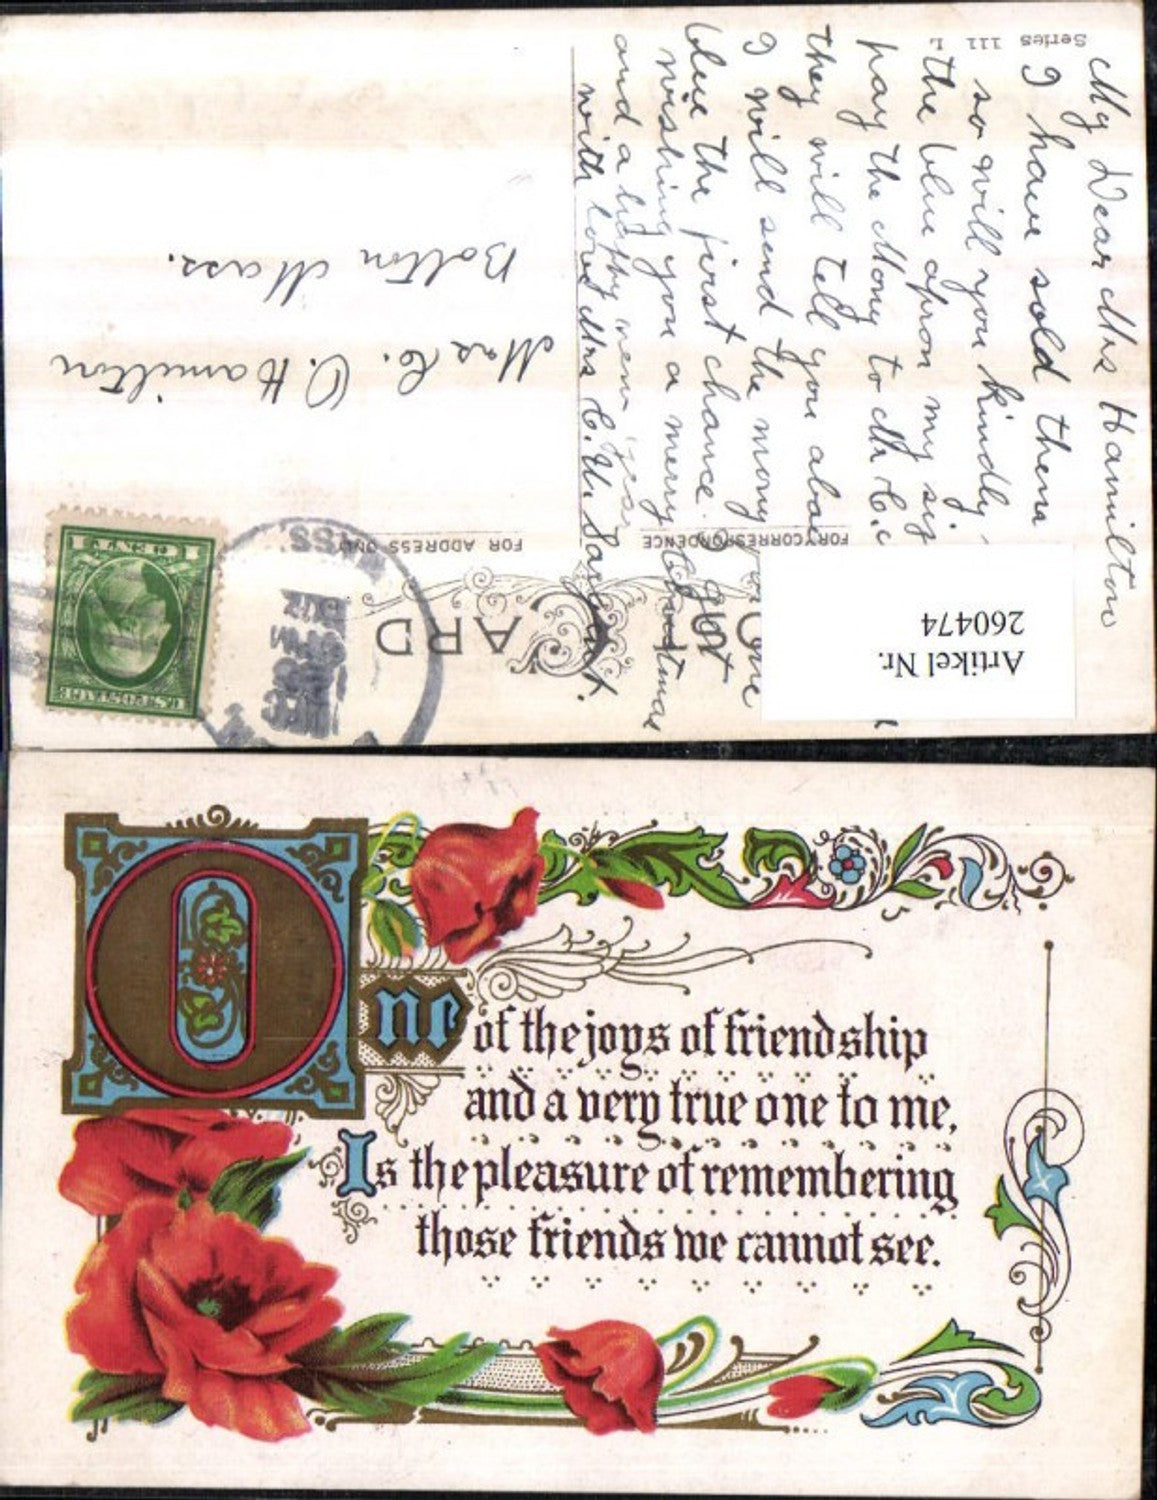 Series 111 L
My Dear Mrs Hamilton
I have sold them
so will you kindly
the blue apron my sig
pay the Mony to Mr C.C
they will tell you aboe
I will send the mony
blue the first chance I got
wishing you a merry Christmas
and a happy new year
with love Mrs C. U. Sargent.
CARD
FOR CORRESPONDENCE
FOR ADDRESS ONLY
Artikel Nr.
260474
MASS.
U.S. POSTAGE
1 CENT 1
Mrs C. O. Hamilton
Bolton Mass.
One of the joys of friendship
and a very true one to me,
Is the pleasure of remembering
those friends we cannot see.